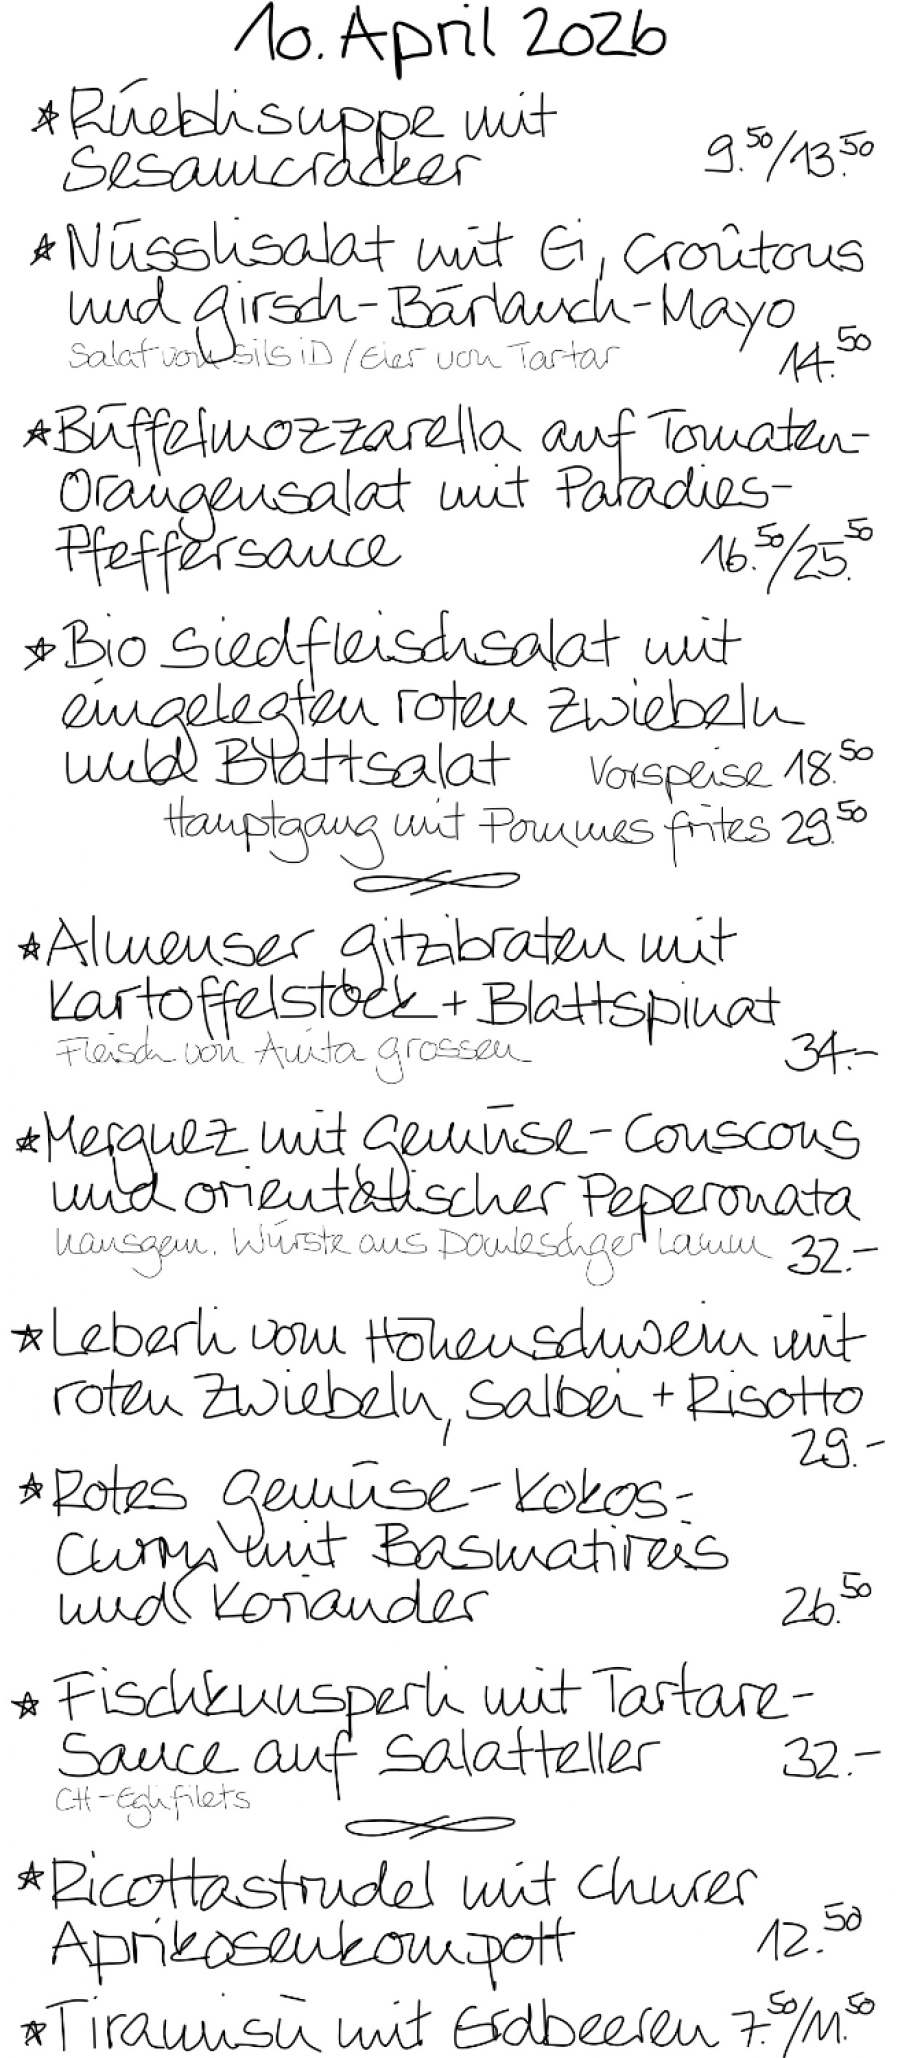 10. April 2026
* Rüeblisuppe mit
Sesamcracker 9.50/13.50
* Nüsslisalat mit Ei, Croûtons
und Girsch-Bärlauch-Mayo
Salat von Sils iD / Eier von Tartar 14.50
* Büffelmozzarella auf Tomaten-
Orangensalat mit Paradies-
Pfeffersauce 16.50/25.50
* Bio Siedfleischsalat mit
eingelegten roten Zwiebeln
und Blattsalat Vorspeise 18.50
Hauptgang mit Pommes frites 29.50
* Almenser Gitzibraten mit
Kartoffelstock + Blattspinat
Fleisch von Anita Grossen 34.-
* Merguez mit Gemüse-Couscous
und orientalischer Peperonata
hausgem. Würste aus Domleschger Lamm 32.-
* Leberli vom Höhenschwein mit
roten Zwiebeln, Salbei + Risotto
29.-
* Rotes Gemüse-Kokos-
Curry mit Basmatireis
und Koriander 26.50
* Fischknusperli mit Tartare-
Sauce auf Salatteller 32.-
CH-Eglifilets
* Ricottastrudel mit Churer
Aprikosenkompott 12.50
* Tiramisù mit Erdbeeren 7.50/11.50